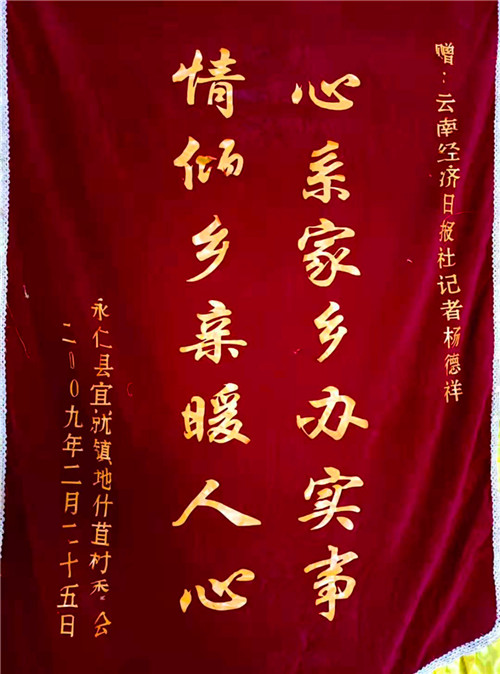 赠：云南经济日报社记者杨德祥
心系家乡办实事
情倾乡亲暖人心
永仁县宜就镇地什苴村委会
二00九年二月二十五日